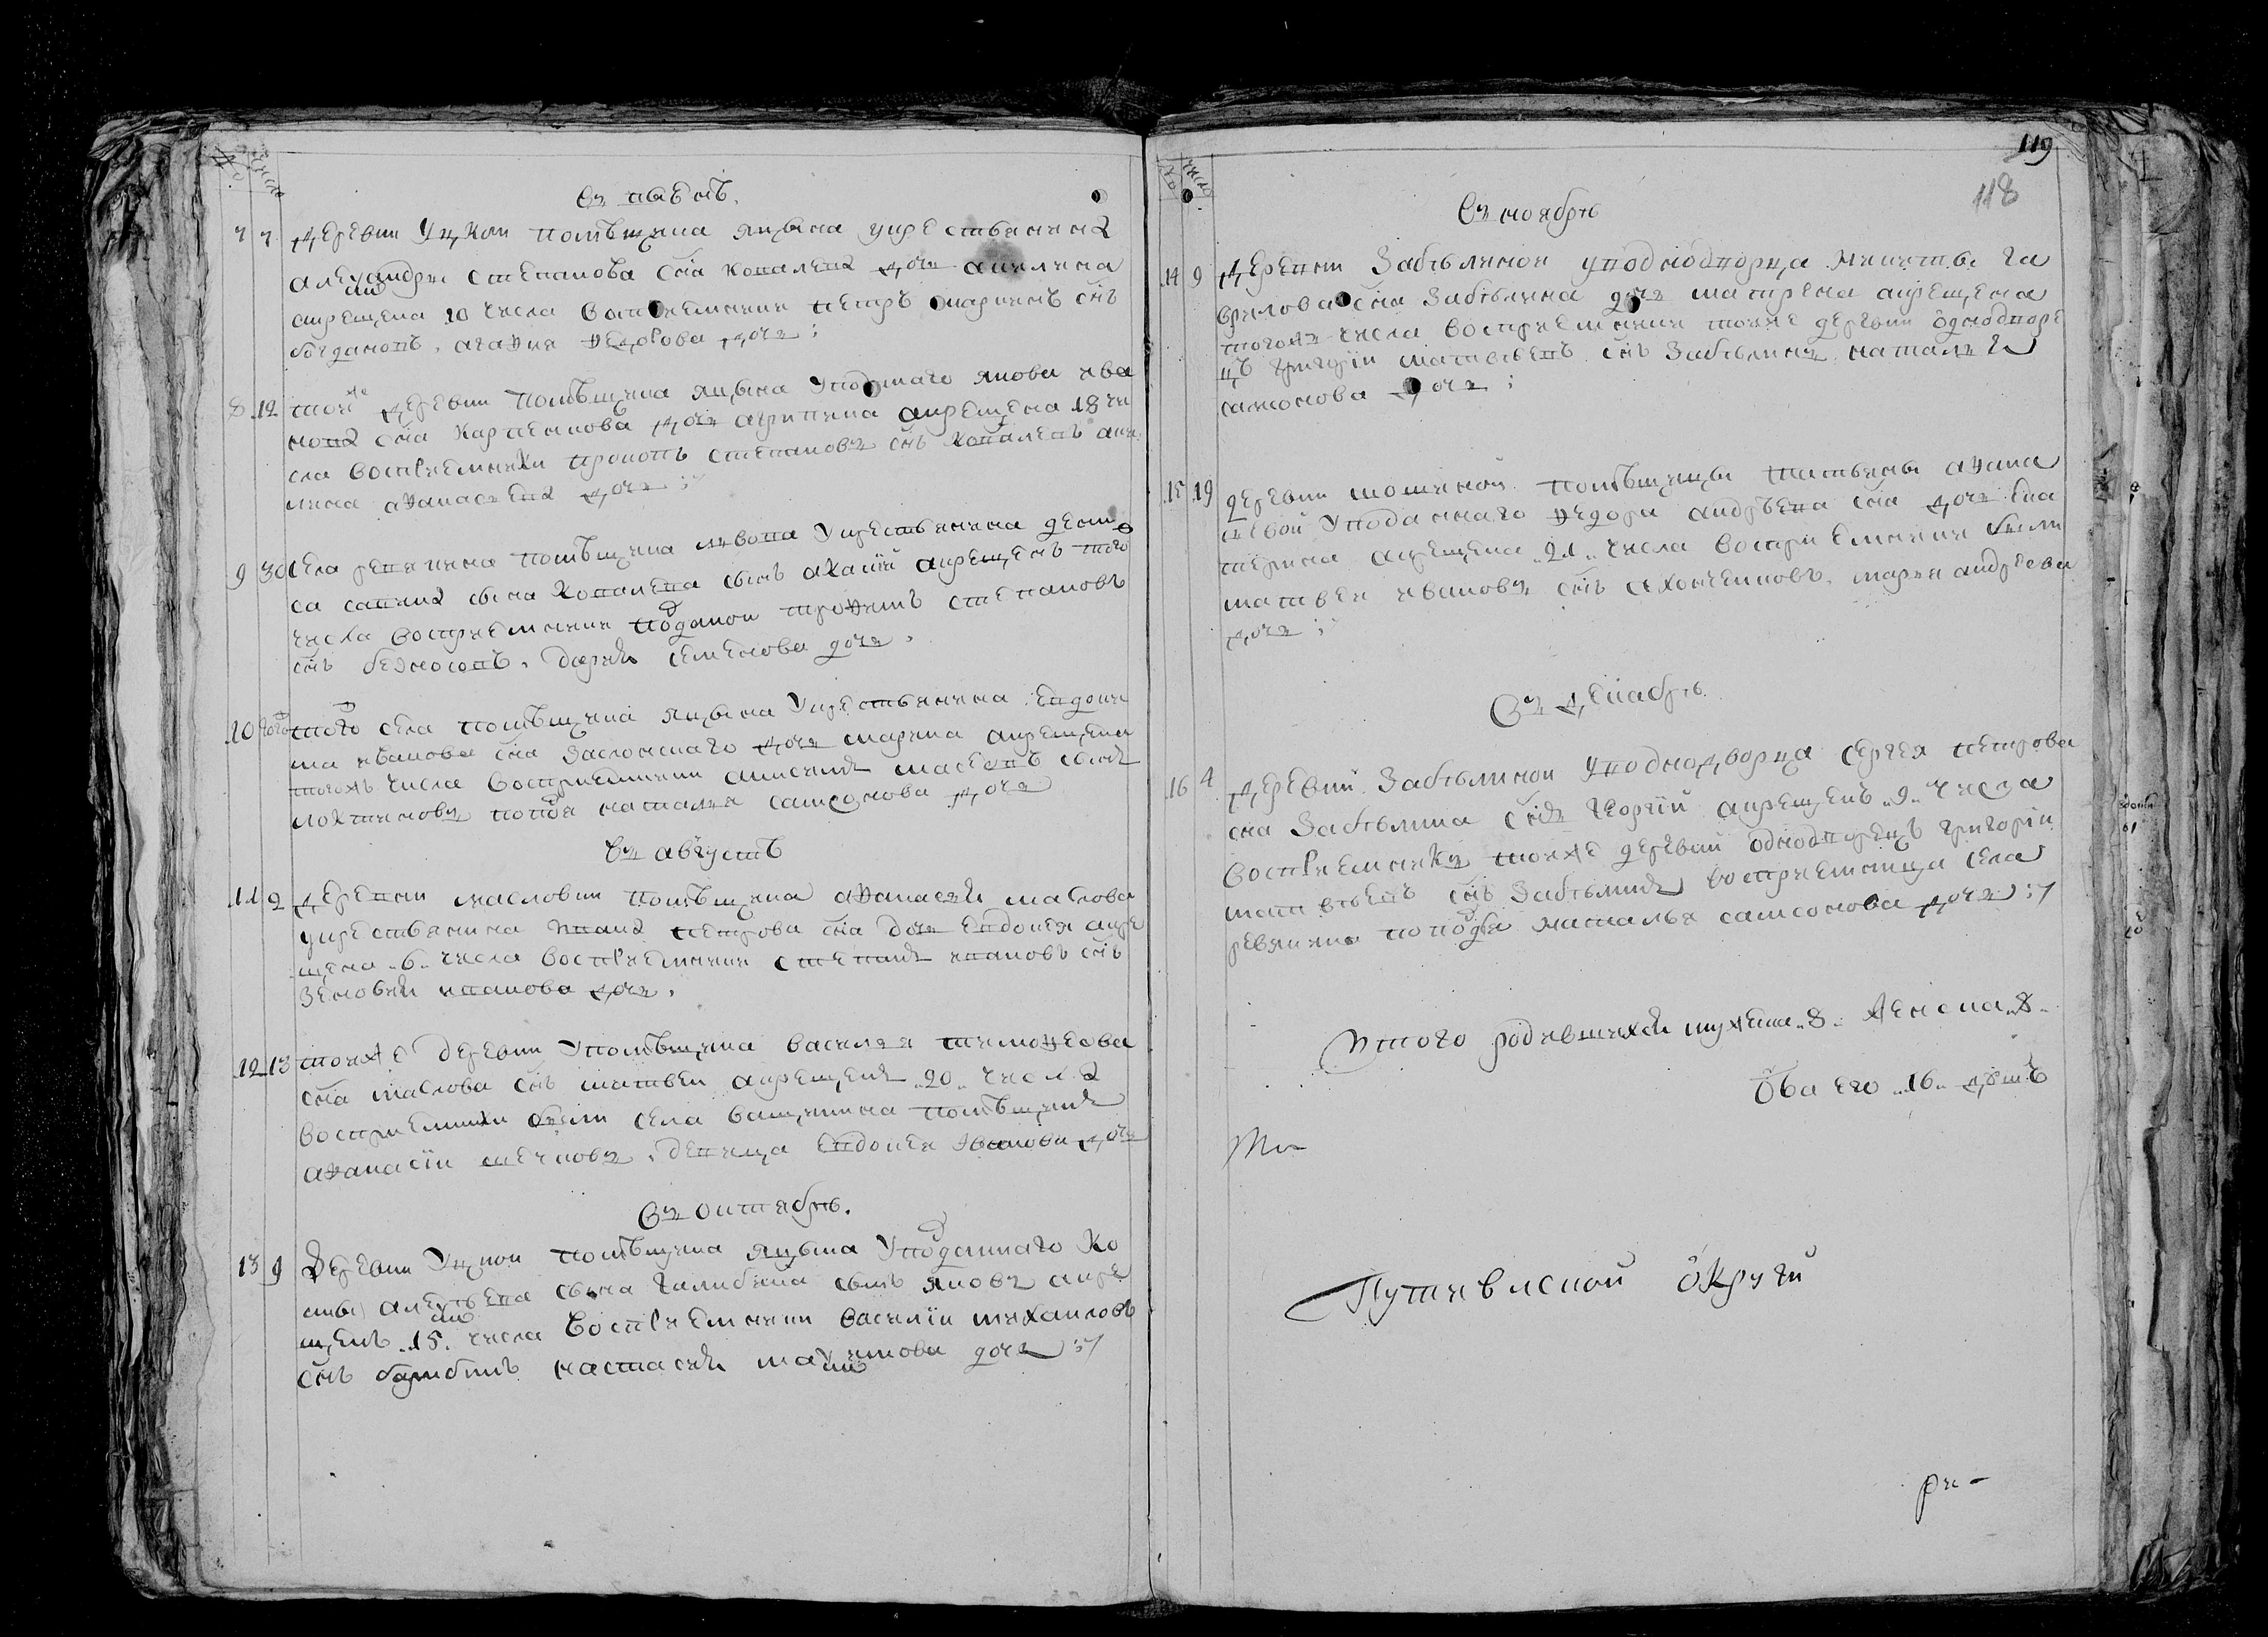 № число
въ июнѣ.
7 7 деревни Уцкой помѣщика яцына укрестьянина
александры степанова сна ковалева дочь акилина
крещена 10 числа восприемники петръ снъ
богдановъ. агафия федорова дочь;
8 12 тойже деревни помѣщика яцына уподанаго якова ива
нова сна карпенкова дочь агрипина крещена 18 чи
сла восприемники прокопъ степановъ снъ ковалевъ аки
лина афанасьева дочь
9 30 села ревякина помѣщика львова укрестьянина дени
са савина сына ковалева сынъ акакий крещенъ того
числа восприемники трофимъ степановъ
снъ безносовъ. дарья семенова дочь.
10 того тогоже села помѣщика яцына укрестьянина евдоки
ма иванова сна заслонкаго дочь марина крещена
тогожъ числа восприемники алисей масеовъ сынъ
локтиновъ попадя наталья самсонова дочь
въ августѣ
11 2 деревни масловки помѣщика афанасия маслова
укрестьянина ивана петрова сна дочь евдокия кре
щена 6 числа восприемники степанъ ивановъ снъ
зеновия иванова дочь.
12 13 тоеже деревни упомѣщика василия тимофеева
сна маслова снъ матвей крещенъ 20 числа
восприемники были села ващенина помѣщикъ
афанасий шечковъ. девица евдокия иванова дочь
въ октябрѣ.
13 9 деревни Уцкой помѣщика яцына уподаннаго ко
змы алексѣева сына галибина сынъ яковъ кре
щенъ 15 числа восприемники василий михаиловъ
снъ барибинъ настасия максимова дочь
№ число
119
118
въ ноябрѣ
14 9 деревни Забѣлиной уподнодворца никиты га
врилова сна Забѣлина дочь матрена крещена
тогожъ числа восприемники тоеже деревни однодворе
цъ григорий матвѣевъ снъ Забѣлинъ наталья
самсонова дочь;
15 19 деревни помѣщицы татьяны афана
сьевой уподаннаго федора андрѣева сна дочь ека
терина крещена 21 числа восприемники были
матвей ивановъ снъ марья андреева
дочь;
въ декабрѣ
16 4 деревни Забѣлиной уподнодворца сергея петрова
сна Забѣлина снъ георгий крещенъ 9 числа
восприемникъ тоеже деревни однодворецъ григорий
матвѣевъ снъ Забѣлинъ восприемница села
ревякина попадя наталья самсонова дочь
итого родившихся мужеска 8 женска 8
обаего 16 душъ
Путивлской округи
ри-